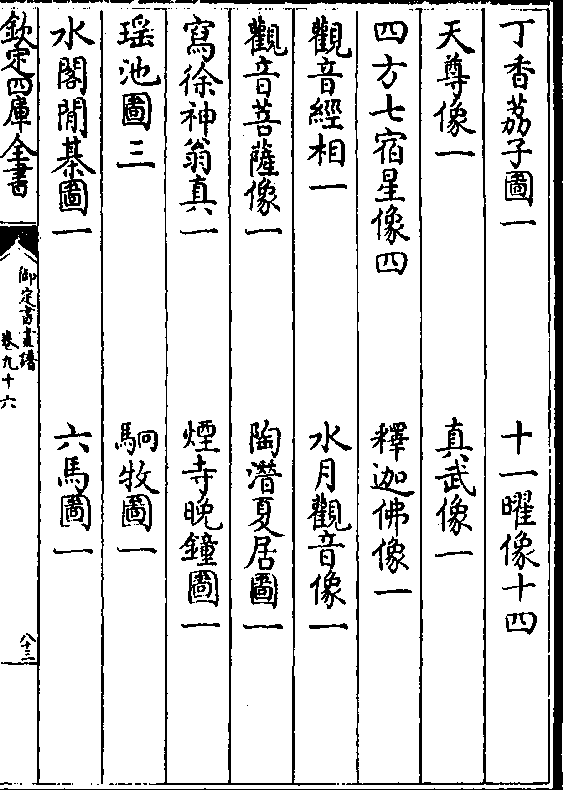 丁香荔子圖一　十一曜像十四
天尊像一　真武像一
四方七宿星像四　釋迦佛像一
觀音經相一　水月觀音像一
觀音菩薩像一　陶潛夏居圖一
寫徐神翁真一　煙寺晚鐘圖一
瑶池圖三　駉牧圖一
水閣閒棊圖一　六馬圖一
欽定四庫全書　御定書畫譜　卷九十六　八十三